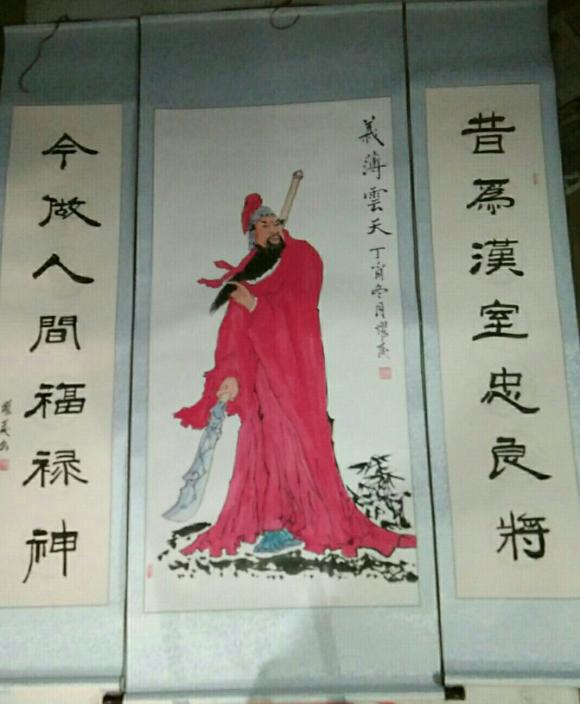 昔為漢室忠良將
義薄雲天
丁酉冬月
今做人間福祿神